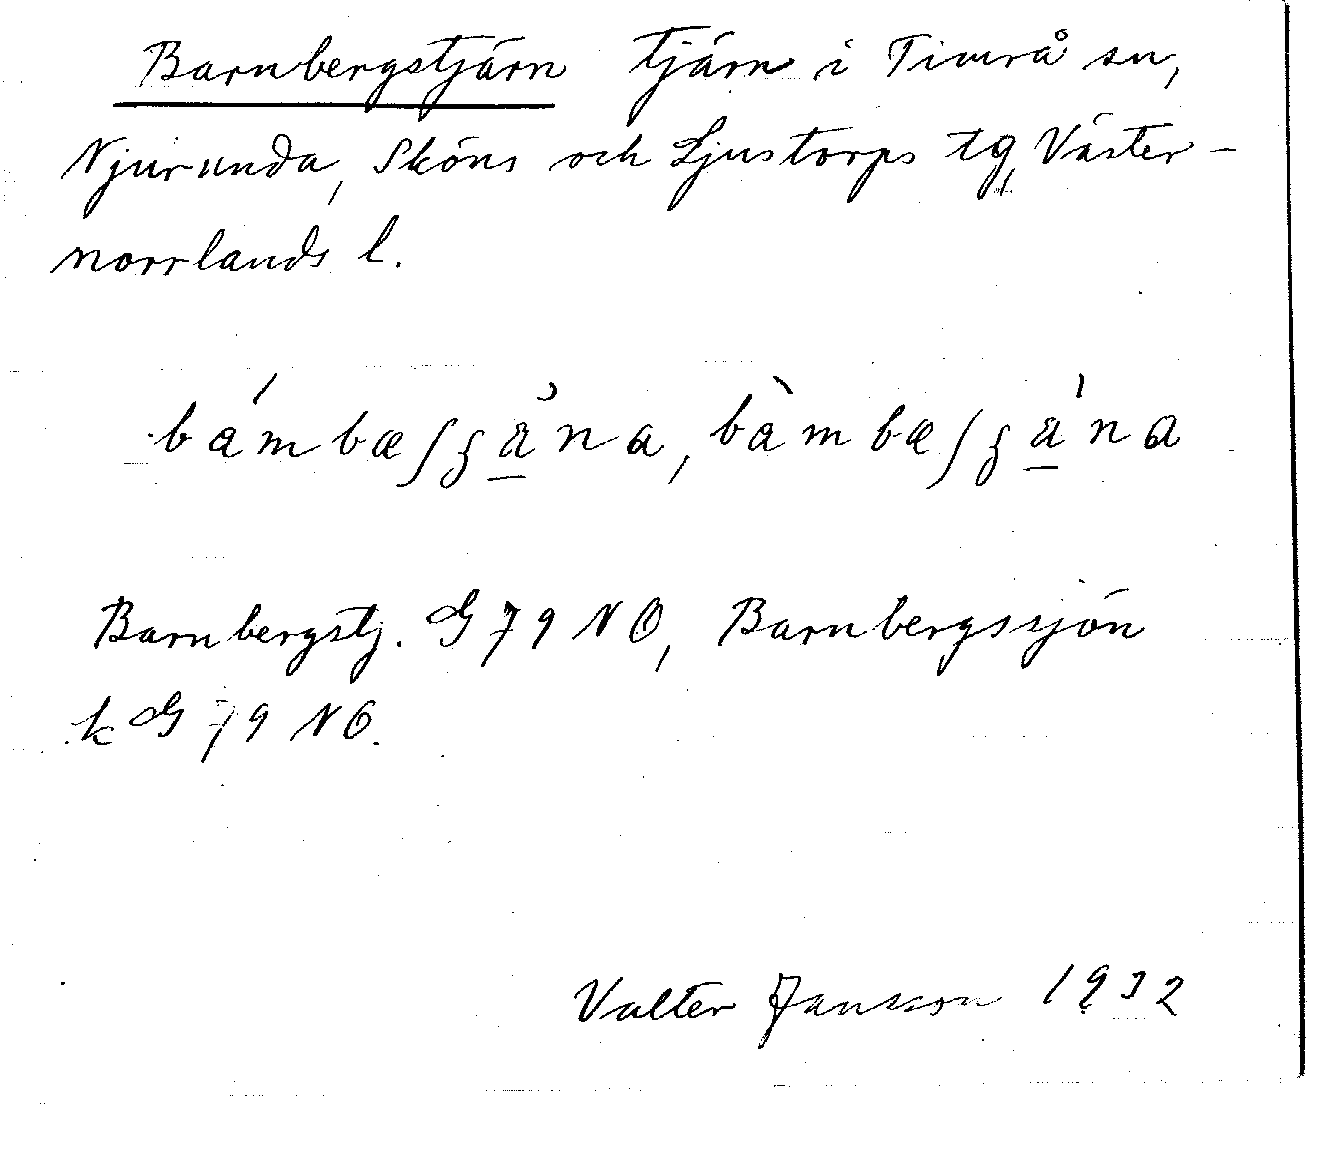 Barnbergstjärn tjärn i Timrå sn,
Njurunda, Sköns och Ljustorps tg, Väster-
norrlands l.
Barnbergstj. G 79 NO, Barnbergssjön
k G 79 NO.
Valter Jansson 1932